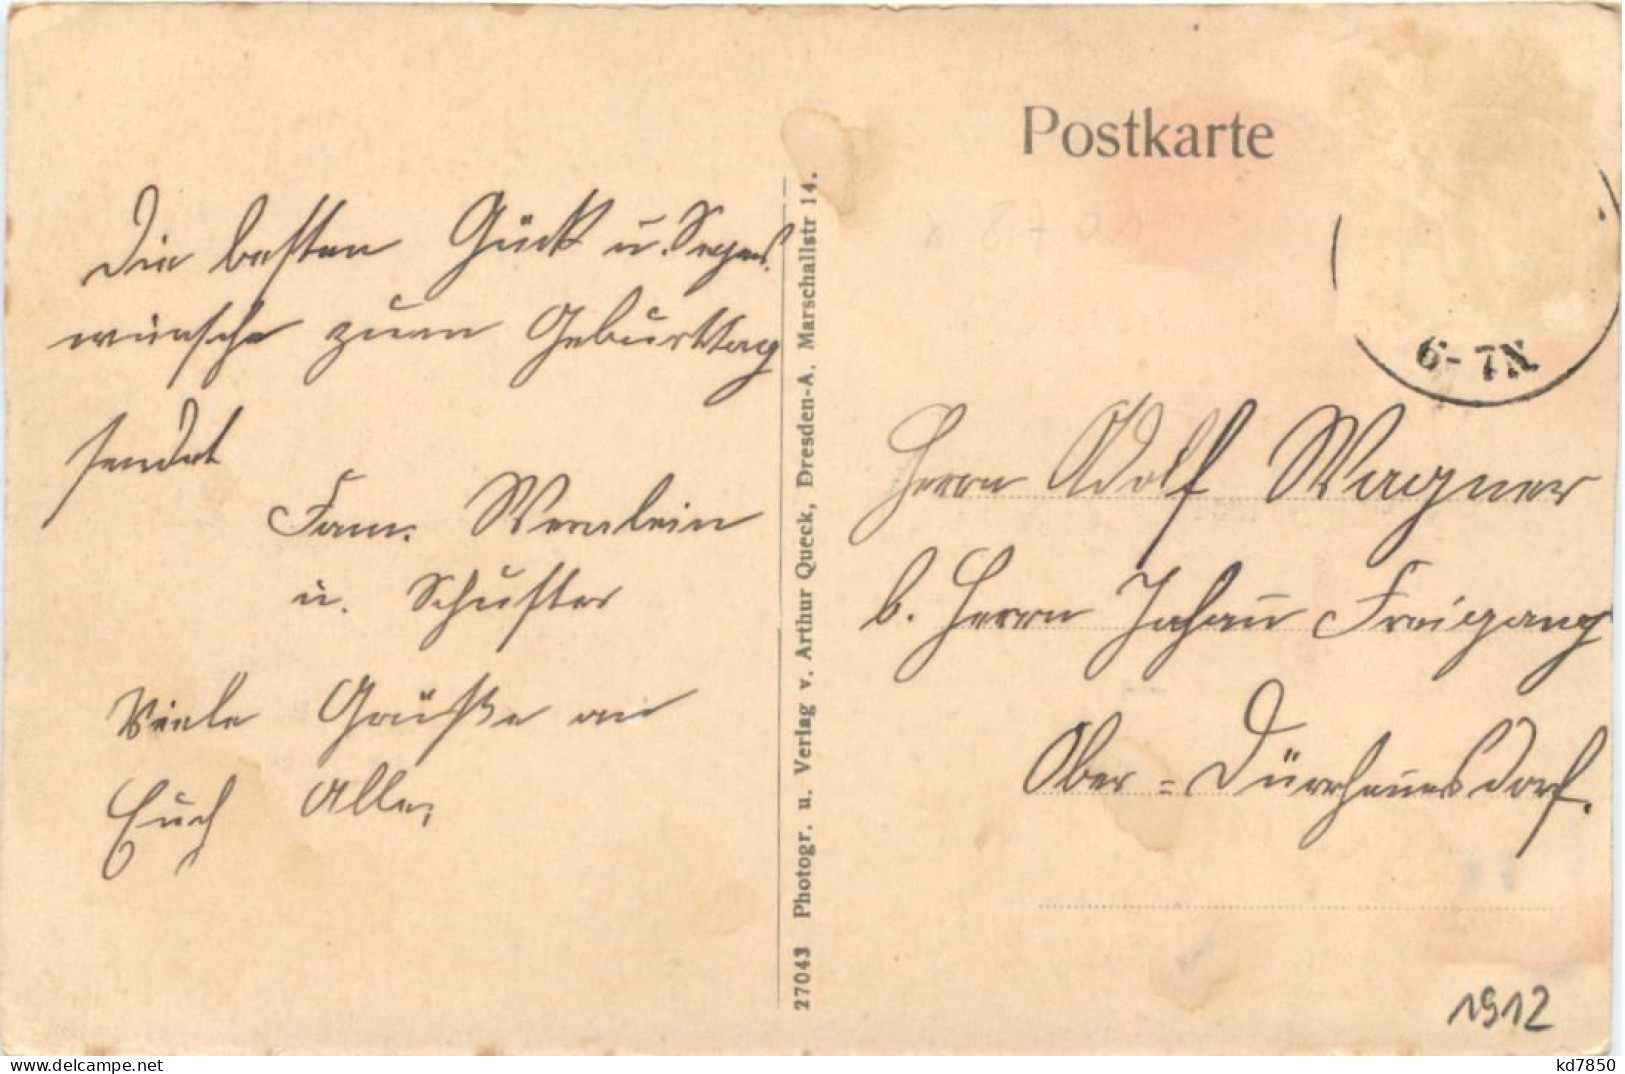 Die besten Glück u. Segens
wünsche zum Geburtstag
sendet
Fam. Wernlein
u. Schuster
Viele Grüße an
Euch Alle,
27043 Photogr. u. Verlag v. Arthur Queck, Dresden-A. Marschallstr 14.
Postkarte
6-7N
Herrn Adolf Wagner
b. Herrn Johann Freigang
Ober = Dürrhennersdorf.
1912
kd7850